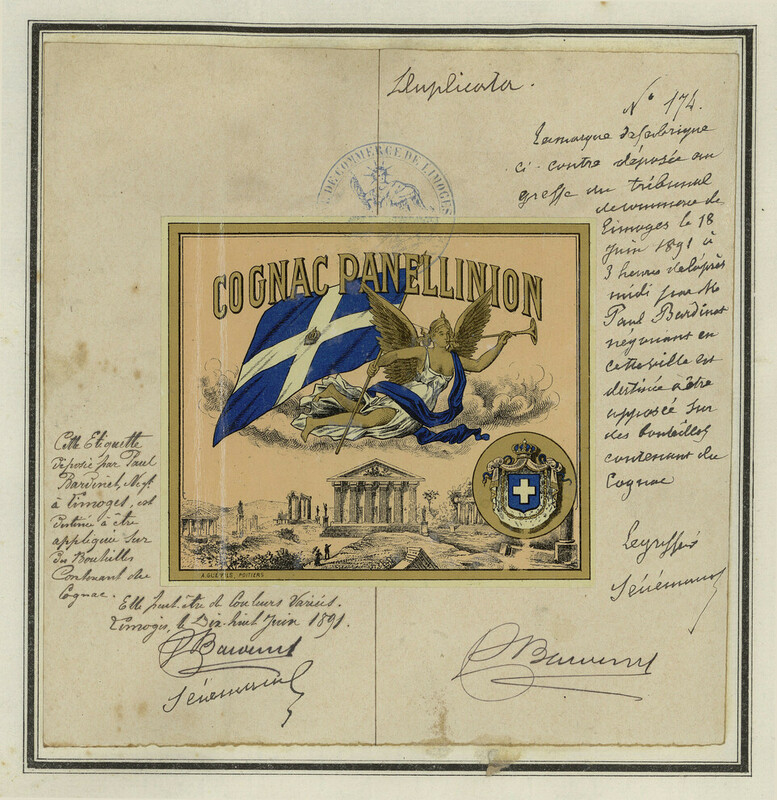 Duplicata.
N° 174.
La marque de fabrique
ci-contre déposée au
greffe du tribunal
de commerce de
Limoges le 18
Juin 1891 à
3 heures de l'après
midi par M
Paul Bardinet
négociant en
cette ville est
destinée à être
apposée sur
des bouteilles
contenant du
Cognac
Le greffier
DE COMMERCE DE LIMOGES
COGNAC PANELLINION
POITIERS
Cette Etiquette
déposée par Paul
Bardinet, Nég
à Limoges, est
destinée à être
appliquée sur
des Bouteilles
Contenant du
Cognac.
Elle peut être de Couleurs Variées.
Limoges, le Dix-huit Juin 1891.